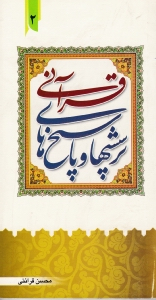 ۲
پرسشها و پاسخ‌های
قرآنی
محسن قرائتی